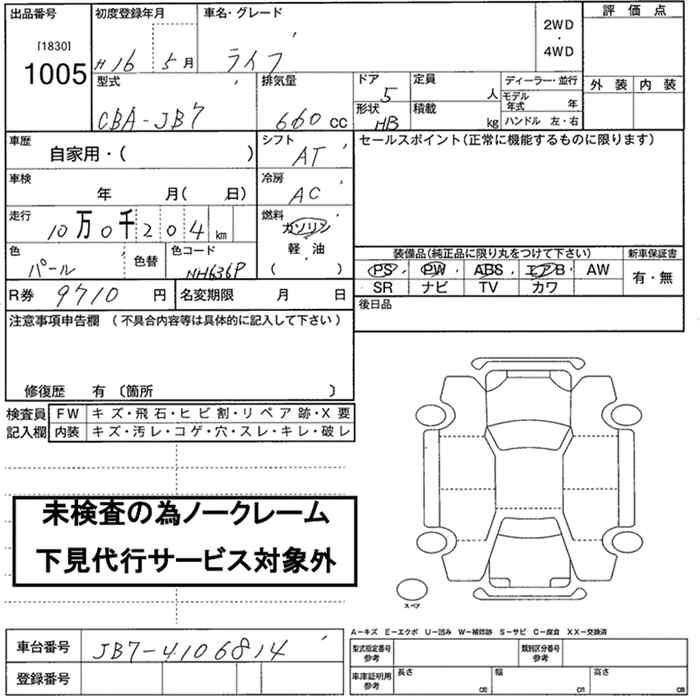 出品番号 初度登録年月 車名・グレード 評価点
[1830]
1005 H16 5月 ライフ 2WD・4WD
型式 排気量 ドア 定員 ディーラー・並行 外装 内装
CBA-JB7 660cc 5 人 モデル年式 年
形状 積載 ハンドル 左・右
HB kg
車歴 シフト セールスポイント(正常に機能するものに限ります)
自家用・( ) AT
車検 冷房
年 月( 日) AC
走行 燃料
10万0千204km ガソリン
軽・油
( )
色 色替 色コード 装備品(純正品に限り丸をつけて下さい) 新車保証書
パール NH636P PS PW ABS エアB AW 有・無
SR ナビ TV カワ
R券 9710円 名変期限 月 日 後日品
注意事項申告欄 (不具合内容等は具体的に記入して下さい)
修復歴 有 〔箇所 〕
検査員 FW キズ・飛石・ヒビ割・リペア跡・X要
記入欄 内装 キズ・汚レ・コゲ・穴・スレ・キレ・破レ
未検査の為ノークレーム
下見代行サービス対象外
スペア
A-キズ E-エクボ U-凹み W-補修跡 S-サビ C-腐食 XX-交換済
車台番号 JB7-4106814 型式指定番号 参考 類別区分番号 参考
登録番号 車庫証明用 参考 長さ cm 幅 cm 高さ cm